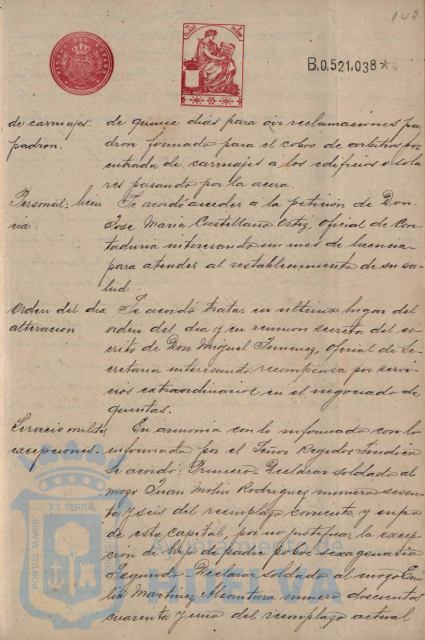 142
B.0.521,038*
de carruajes: de quince dias para oir reclamaciones pa
padron. dron formado para el cobro de arbitrios por
entrada de carruajes a los edificios o sola
res pasando por la acera.
Personal: licen Se acordó acceder a la petición de Don
cia. Jose Maria Castellano Ortiz, oficial de Con
taduria interesando un mes de licencia
para atender al restablecimiento de su sa-
lud.
Orden del dia Se acordó tratar en último lugar del
alteracion orden del dia y en reunion secreta del es
crito de Don Miguel Jimenez, oficial de Se
cretaria interesando recompensa por servi
cios extraordinarios en el negociado de
quintas.
Servicio militar En armonia con lo informado con lo
excepciones. informado por el Señor Regidor Sindico
se acordó: Primero Declarar soldado al
mozo Juan Molin Rodriguez numero sesen
ta y seis del reemplazo corriente y cupo
de esta Capital, por no justificar la excep
cion de hijo de padre pobre sexagenario
Segundo - Declarar soldado al mozo Emi
lio Martinez Alcantara numero doscientos
cuarenta y uno del reemplazo actual
PORTUS MARIS ET TERRÆ
HUELVA